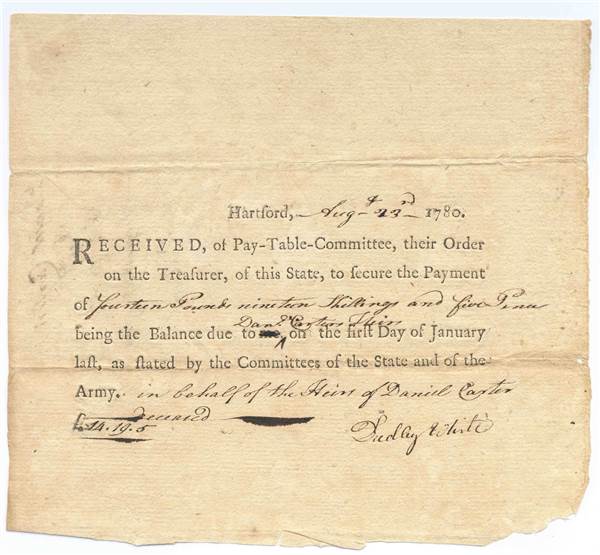 Hartford, Augt 23rd 1780.
RECEIVED, of Pay-Table-Committee, their Order
on the Treasurer, of this State, to secure the Payment
of fourteen Pounds nineteen Shillings and five Pence
Danl Carters Heirs
being the Balance due to me, on the first Day of January
last, as stated by the Committees of the State and of the
Army. in behalf of the Heirs of Daniel Carter
deceased
£14.19.5
Dudley White